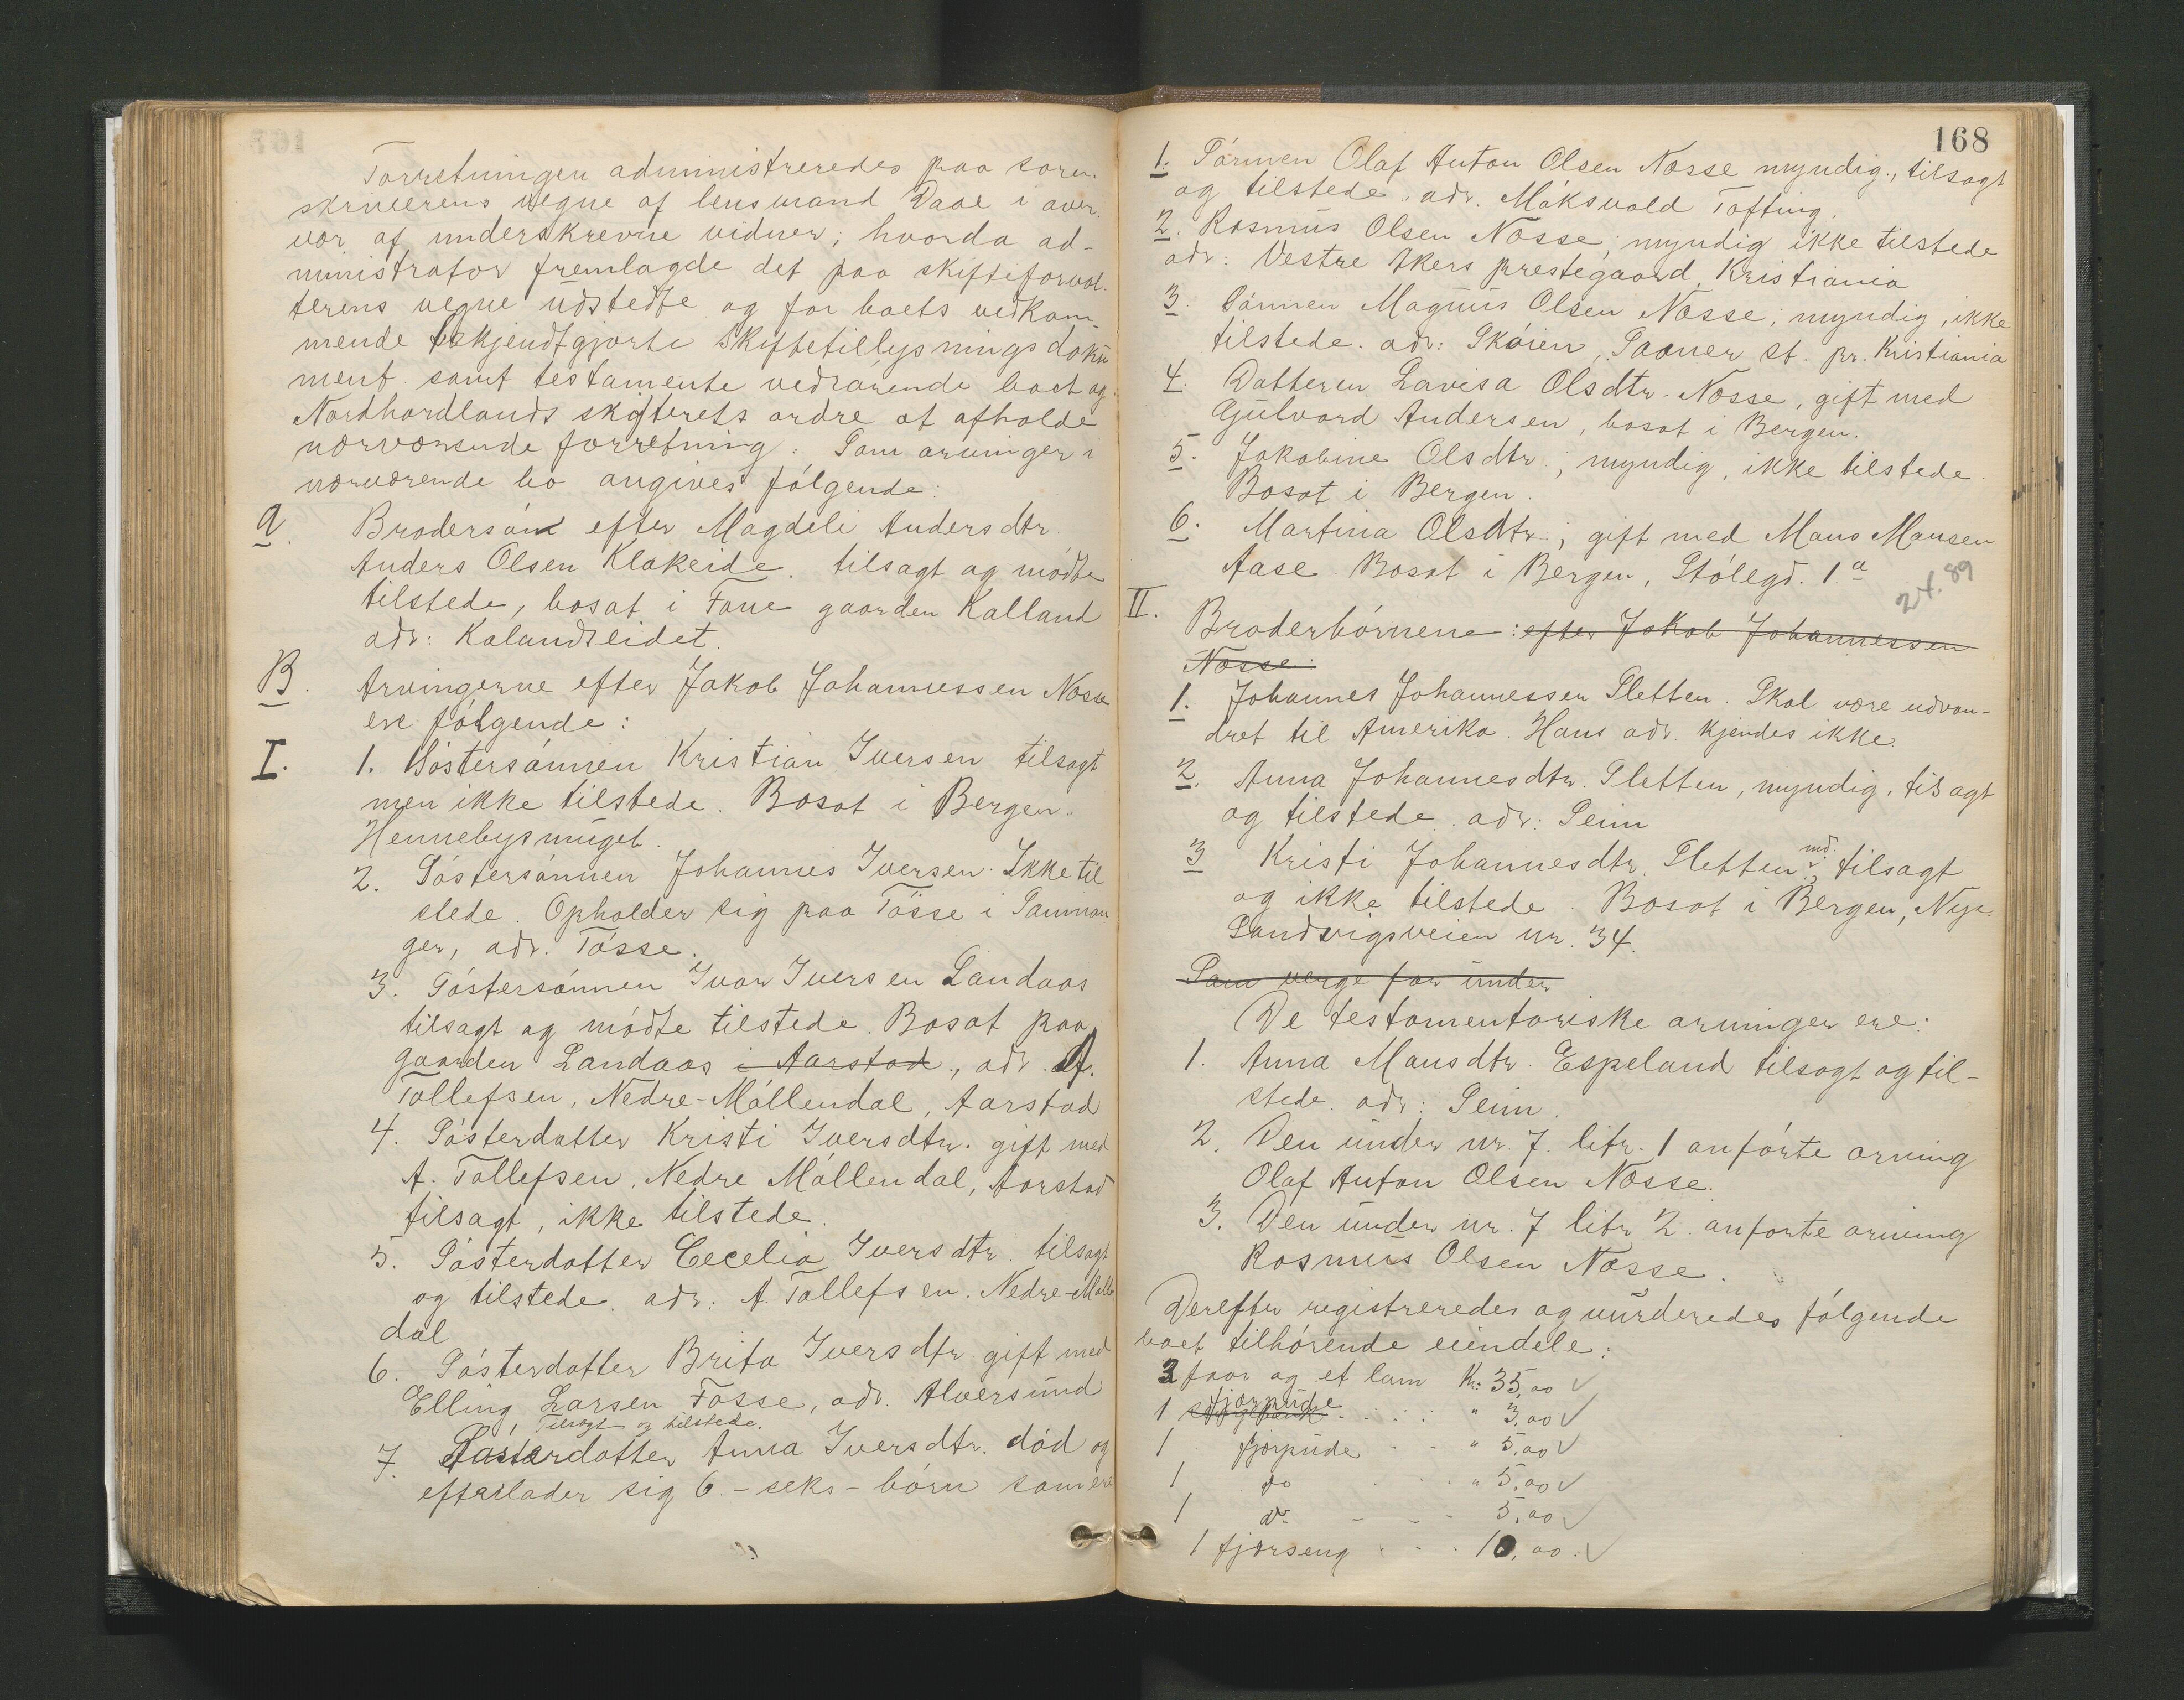 Forretningen administreredes paa soren-
skriverens vegne af lensmand Daae i over-
vær af underskrevne vidner; hvorda ad-
ministrator fremlagde det paa skifteforval-
terens vegne udstedte og for boets vedkom-
mende bekjendtgjorte skiftetillysningsdoku
ment samt testamente vedrørende boet og
Nordhordlands skifterets ordre at afholde
nærværende forretning. Som arvinger i
nærværende bo angives følgende:
A. Brodersøn efter Magdeli Andersdtr.
Anders Olsen Klakeide. tilsagt og mødte
tilstede, bosat i Fane gaarden Kalland
adr: Kalandseidet.
B. Arvingerne efter Jakob Johannessen Næsse
ere følgende:
I. 1. Søstersønnen Kristian Iversen tilsagt
men ikke tilstede. Bosat i Bergen.
Hennebysmuget.
2. Søstersønnen Johannes Iversen. Ikke til
stede. Opholder sig paa Tøsse i Samnan
ger, adr. Tøsse.
3. Søstersønnen Ivar Iversen Landaas
tilsagt og mødte tilstede. Bosat paa
gaarden Landaas i Aarstad, adr. A.
Tollefsen, Nedre-Møllendal, Aarstad
4. Søsterdatter Kristi Iversdtr. gift med
A. Tollefsen, Nedre Møllendal, Aarstad
tilsagt, ikke tilstede.
5. Søsterdatter Cecelia Iversdtr. tilsagt
og tilstede. adr: A. Tollefsen. Nedre-Mølle
dal
6. Søsterdatter Brita Iversdtr. gift med
Elling Larsen Fosse, adr. Alversund
Tilsagt og tilstede.
7. Søsterdatter Anna Iversdtr. død og
efterlader sig 6 - seks - børn som ere
168
1. Sønnen Olaf Anton Olsen Næsse myndig, tilsagt
og tilstede. adr. Møksvold Tofting.
2. Rasmus Olsen Næsse; myndig ikke tilstede
adr: Vestre Akers prestegaard, Kristiania
3. Sønnen Magnus Olsen Næsse; myndig, ikke
tilstede. adr: Skøien, Saaner st. pr. Kristiania
4. Datteren Lavisa Olsdtr. Næsse, gift med
Gulvard Andersen, bosat i Bergen.
5. Jakobine Olsdtr.; myndig, ikke tilstede.
Bosat i Bergen.
6. Martina Olsdtr.; gift med Mans Mansen
Aase. Bosat i Bergen, Stølegd. 1.a
24.89
II. Broderbørnene: efter Jakob Johannessen
Næsse.
1. Johannes Johannessen Sletten. Skal være udvan-
dret til Amerika. Hans adr. kjendes ikke.
2. Anna Johannesdtr. Sletten, myndig, tilsagt
og tilstede. adr: Seim
3 Kristi Johannesdtr. Sletten md. tilsagt
og ikke tilstede. Bosat i Bergen, Nye
Sandvigsveien nr. 34.
Som verge for under
De testamentariske arvinger ere:
1. Anna Mansdtr. Espeland tilsagt og til-
stede. adr: Seim.
2. Den under nr. 7. litr. 1 anførte arving
Olaf Anton Olsen Næsse.
3. Den under nr. 7 litr 2 anførte arving
Rasmus Olsen Næsse.
Derefter registreredes og vurderedes følgende
boet tilhørende eiendele:
3 faar og et lam Kr: 35,00 ✓
1 fjærpude " 3,00 ✓
1 fjærpude - - " 5,00 ✓
1 do " 5,00 ✓
1 do - - - 5,00 ✓
1 fjærseng - - - 10,00 ✓